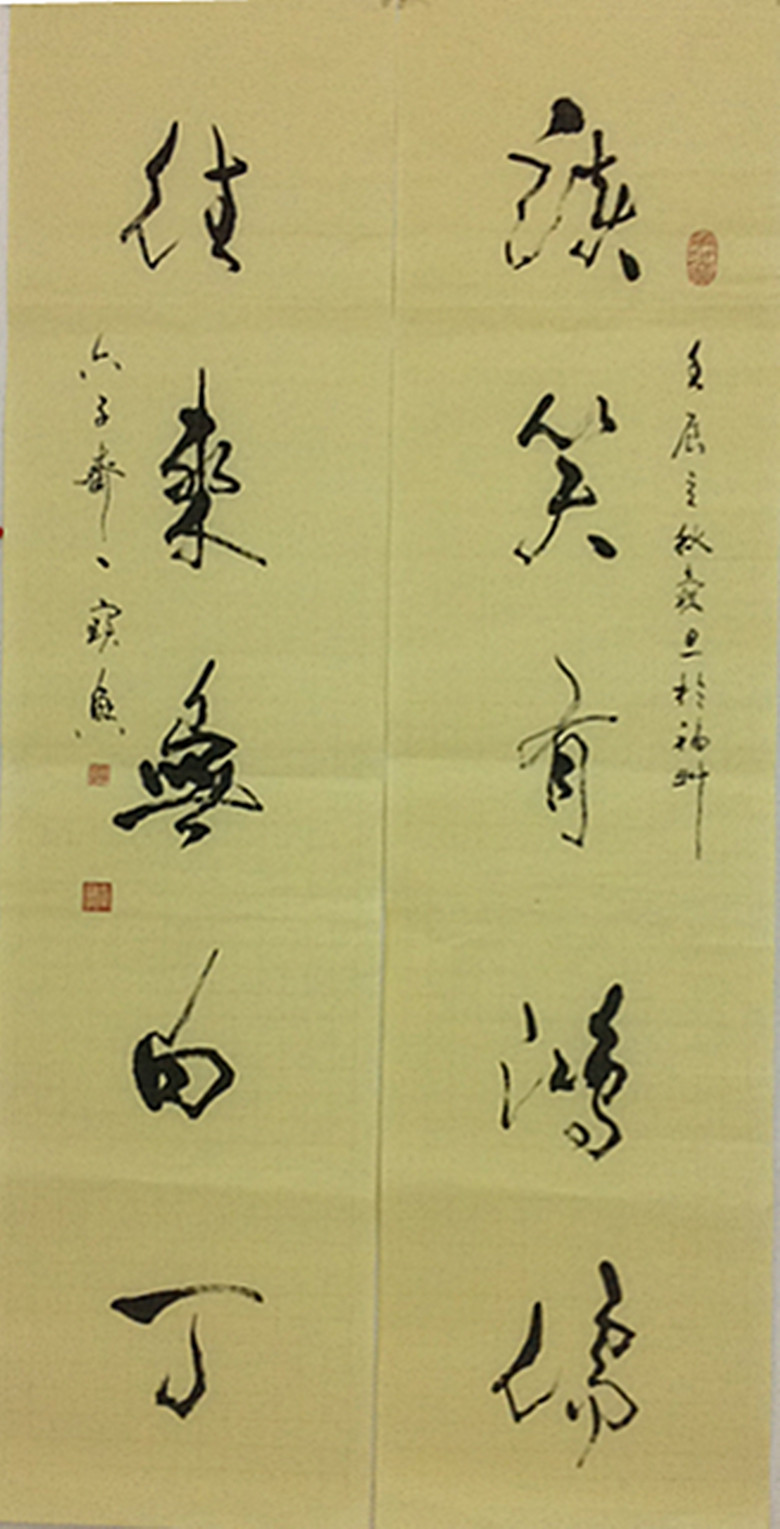 壬辰之秋旦於福州
談笑有鴻儒
往來無白丁
六子齋